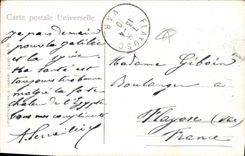 Carte postale Universelle
FLAYOSC
VAR
Je pars demain
pour la galilée
et la Syrie
Ma santé est
toujours très bonne
malgré la forte
chaleur de l'Egypte
Tous mes compliments
Madame Giboin
Boulangère à
Flayosc (Var)
France